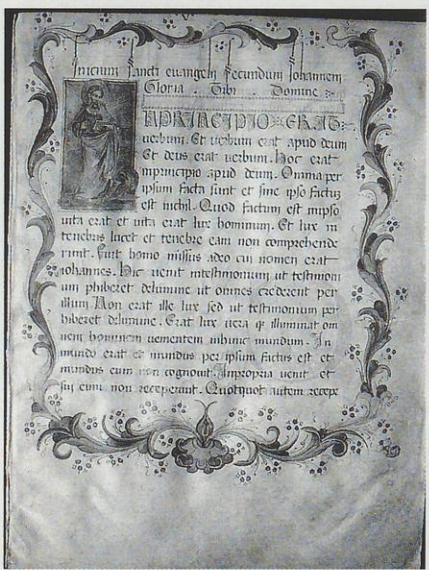 Inicium sancti euangelii secundum Iohannem
Gloria . Tibi . Domine
IN PRINCIPIO ERAT
verbum. Et verbum erat apud deum
Et deus erat verbum. Hoc erat
inprincipio apud deum. Omnia per
ipsum facta sunt et sine ipso factum
est nichil. Quod factum est inipso
vita erat et vita erat lux hominum. Et lux in
tenebris lucet et tenebre eam non comprehende
runt. Fuit homo missus adeo cui nomen erat
iohannes. Hic venit intestimonium ut testimoni
um phiberet delumine ut omnes crederent per
illum Non erat ille lux sed ut testimonium per
hiberet delumine. Erat lux vera q illuminat om
nem hominem venientem inhunc mundum. In
mundo erat et mundus per ipsum factus est et
mundus eum non cognouit. Impropria venit et
sui eum non receperunt. Quotquot autem recepe